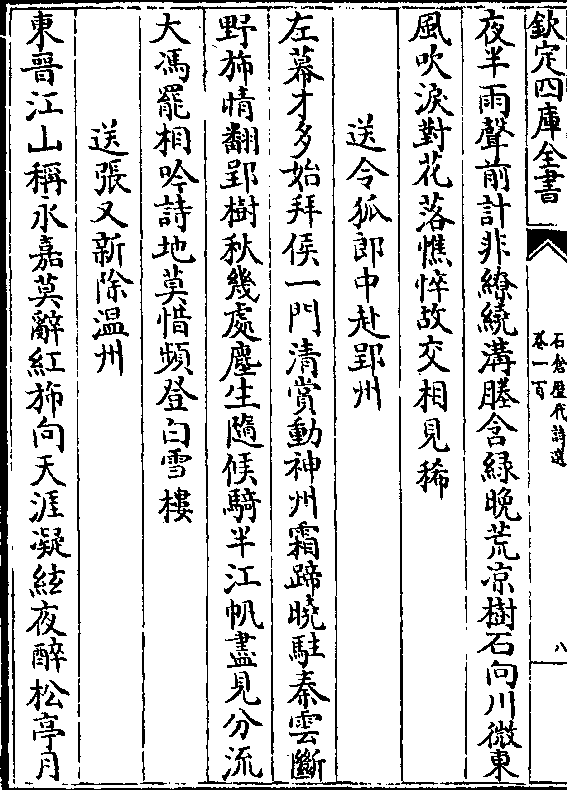 欽定四庫全書
石倉歷代詩選
卷一百
八
夜半雨聲前計非繚繞溝塍含緑晚荒凉樹石向川微東
風吹淚對花落憔悴故交相見稀
送令狐郎中赴郢州
左幕才多始拜侯一門清賞動神州霜蹄曉駐秦雲斷
野斾晴翻郢樹秋幾處塵生隨候騎半江帆盡見分流
大馮罷相吟詩地莫惜頻登白雪樓
送張又新除温州
東晉江山稱永嘉莫辭紅斾向天涯凝絃夜醉松亭月